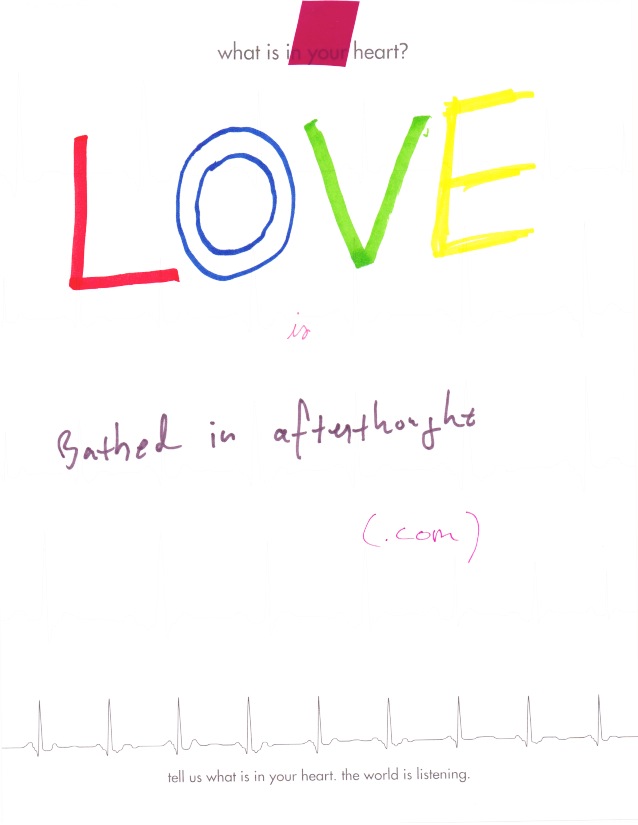 what is in your heart?
LOVE
is
Bathed in afterthought
(.com)
tell us what is in your heart. the world is listening.